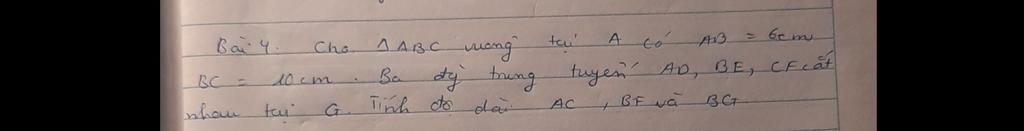 Bài 4. Cho ΔABC vuông tại A có AB = 6cm
BC = 10cm. Ba đg trung tuyến AD, BE, CF cắt
nhau tại G. Tính độ dài AC, BF và BG